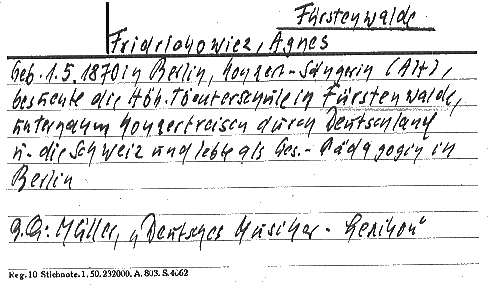 Fürstenwalde
Fridrichowicz, Agnes
Geb. 1.5.1870 in Berlin, Konzert-Sängerin (Alt),
besuchte die Höh. Töchterschule in Fürstenwalde,
unternahm Konzertreisen durch Deutschland
u. die Schweiz und lebte als Ges.-Pädagogin in
Berlin
Müller, „Deutsches Musiker-Lexikon"
Reg. 10 Stichnote. 1. 50. 232000. A. 803. S. 4662